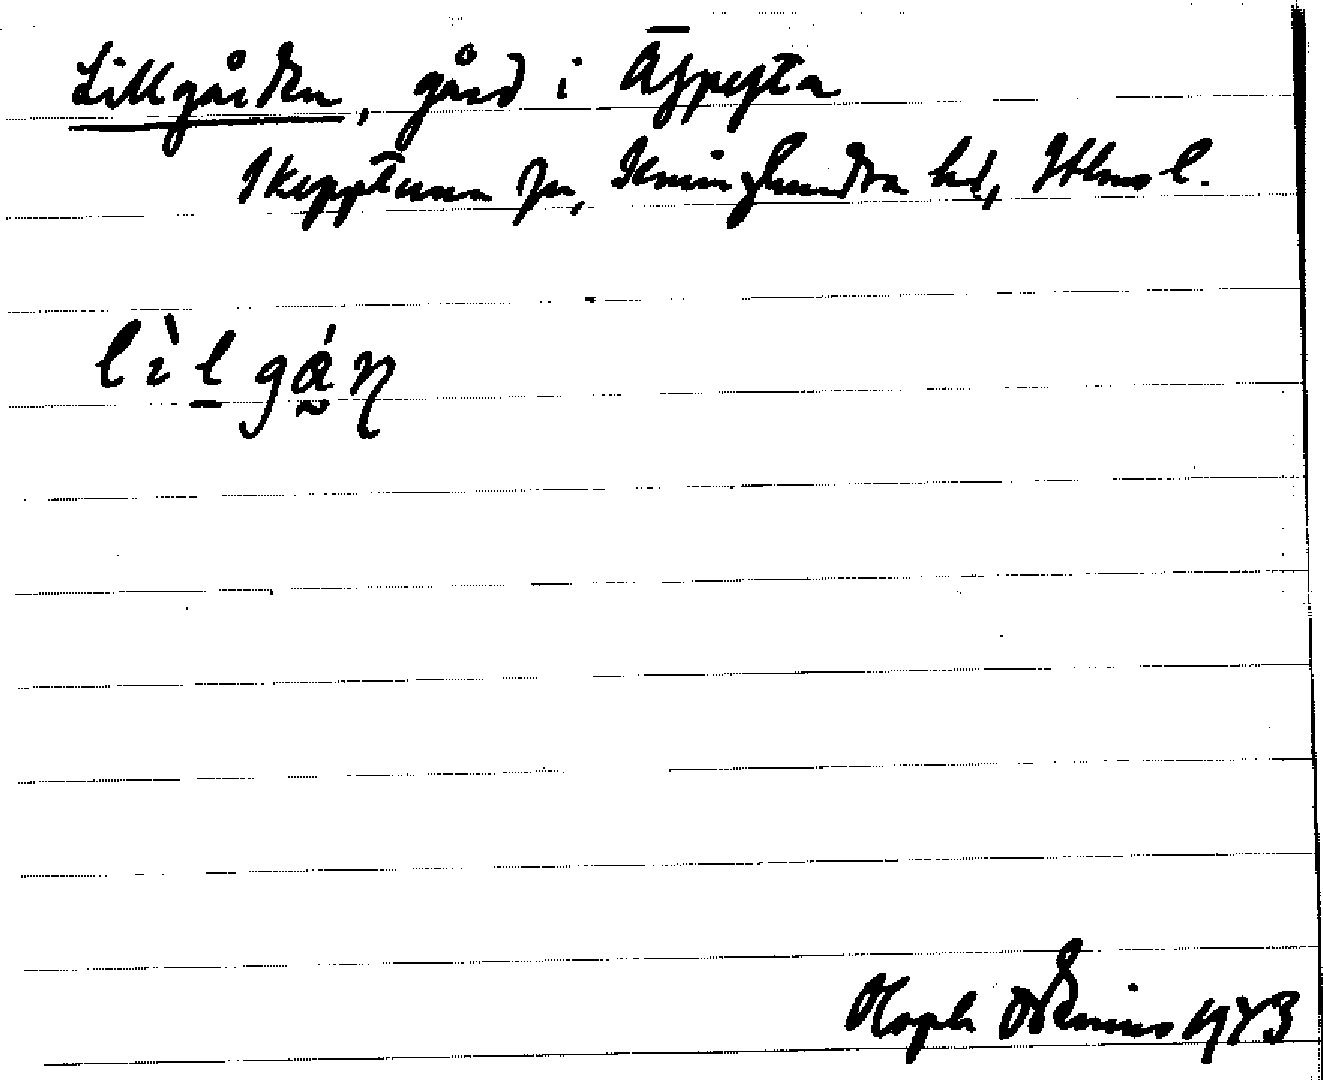 Lillgården, gård i Äspesta
Skepptuna sn, Seminghundra hd, Sthms l.
lìlgán
1973